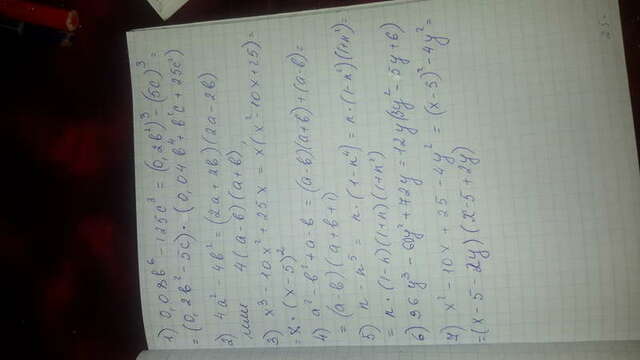 1) 0,008b⁶ - 125c³ = (0,2b²)³ - (5c)³ =
= (0,2b² - 5c) · (0,04b⁴ + b²c + 25c²)
2) 4a² - 4b² = (2a + 2b)(2a - 2b)
или 4(a - b)(a + b)
3) x³ - 10x² + 25x = x(x² - 10x + 25) =
= x · (x - 5)²
4) a² - b² + a - b = (a - b)(a + b) + (a - b) =
= (a - b)(a + b + 1)
5) n - n⁵ = n · (1 - n⁴) = n · (1 - n²)(1 + n²) =
= n · (1 - n)(1 + n)(1 + n²)
6) 36y³ - 60y² + 72y = 12y(3y² - 5y + 6)
7) x² - 10x + 25 - 4y² = (x - 5)² - 4y² =
= (x - 5 - 2y)(x - 5 + 2y)